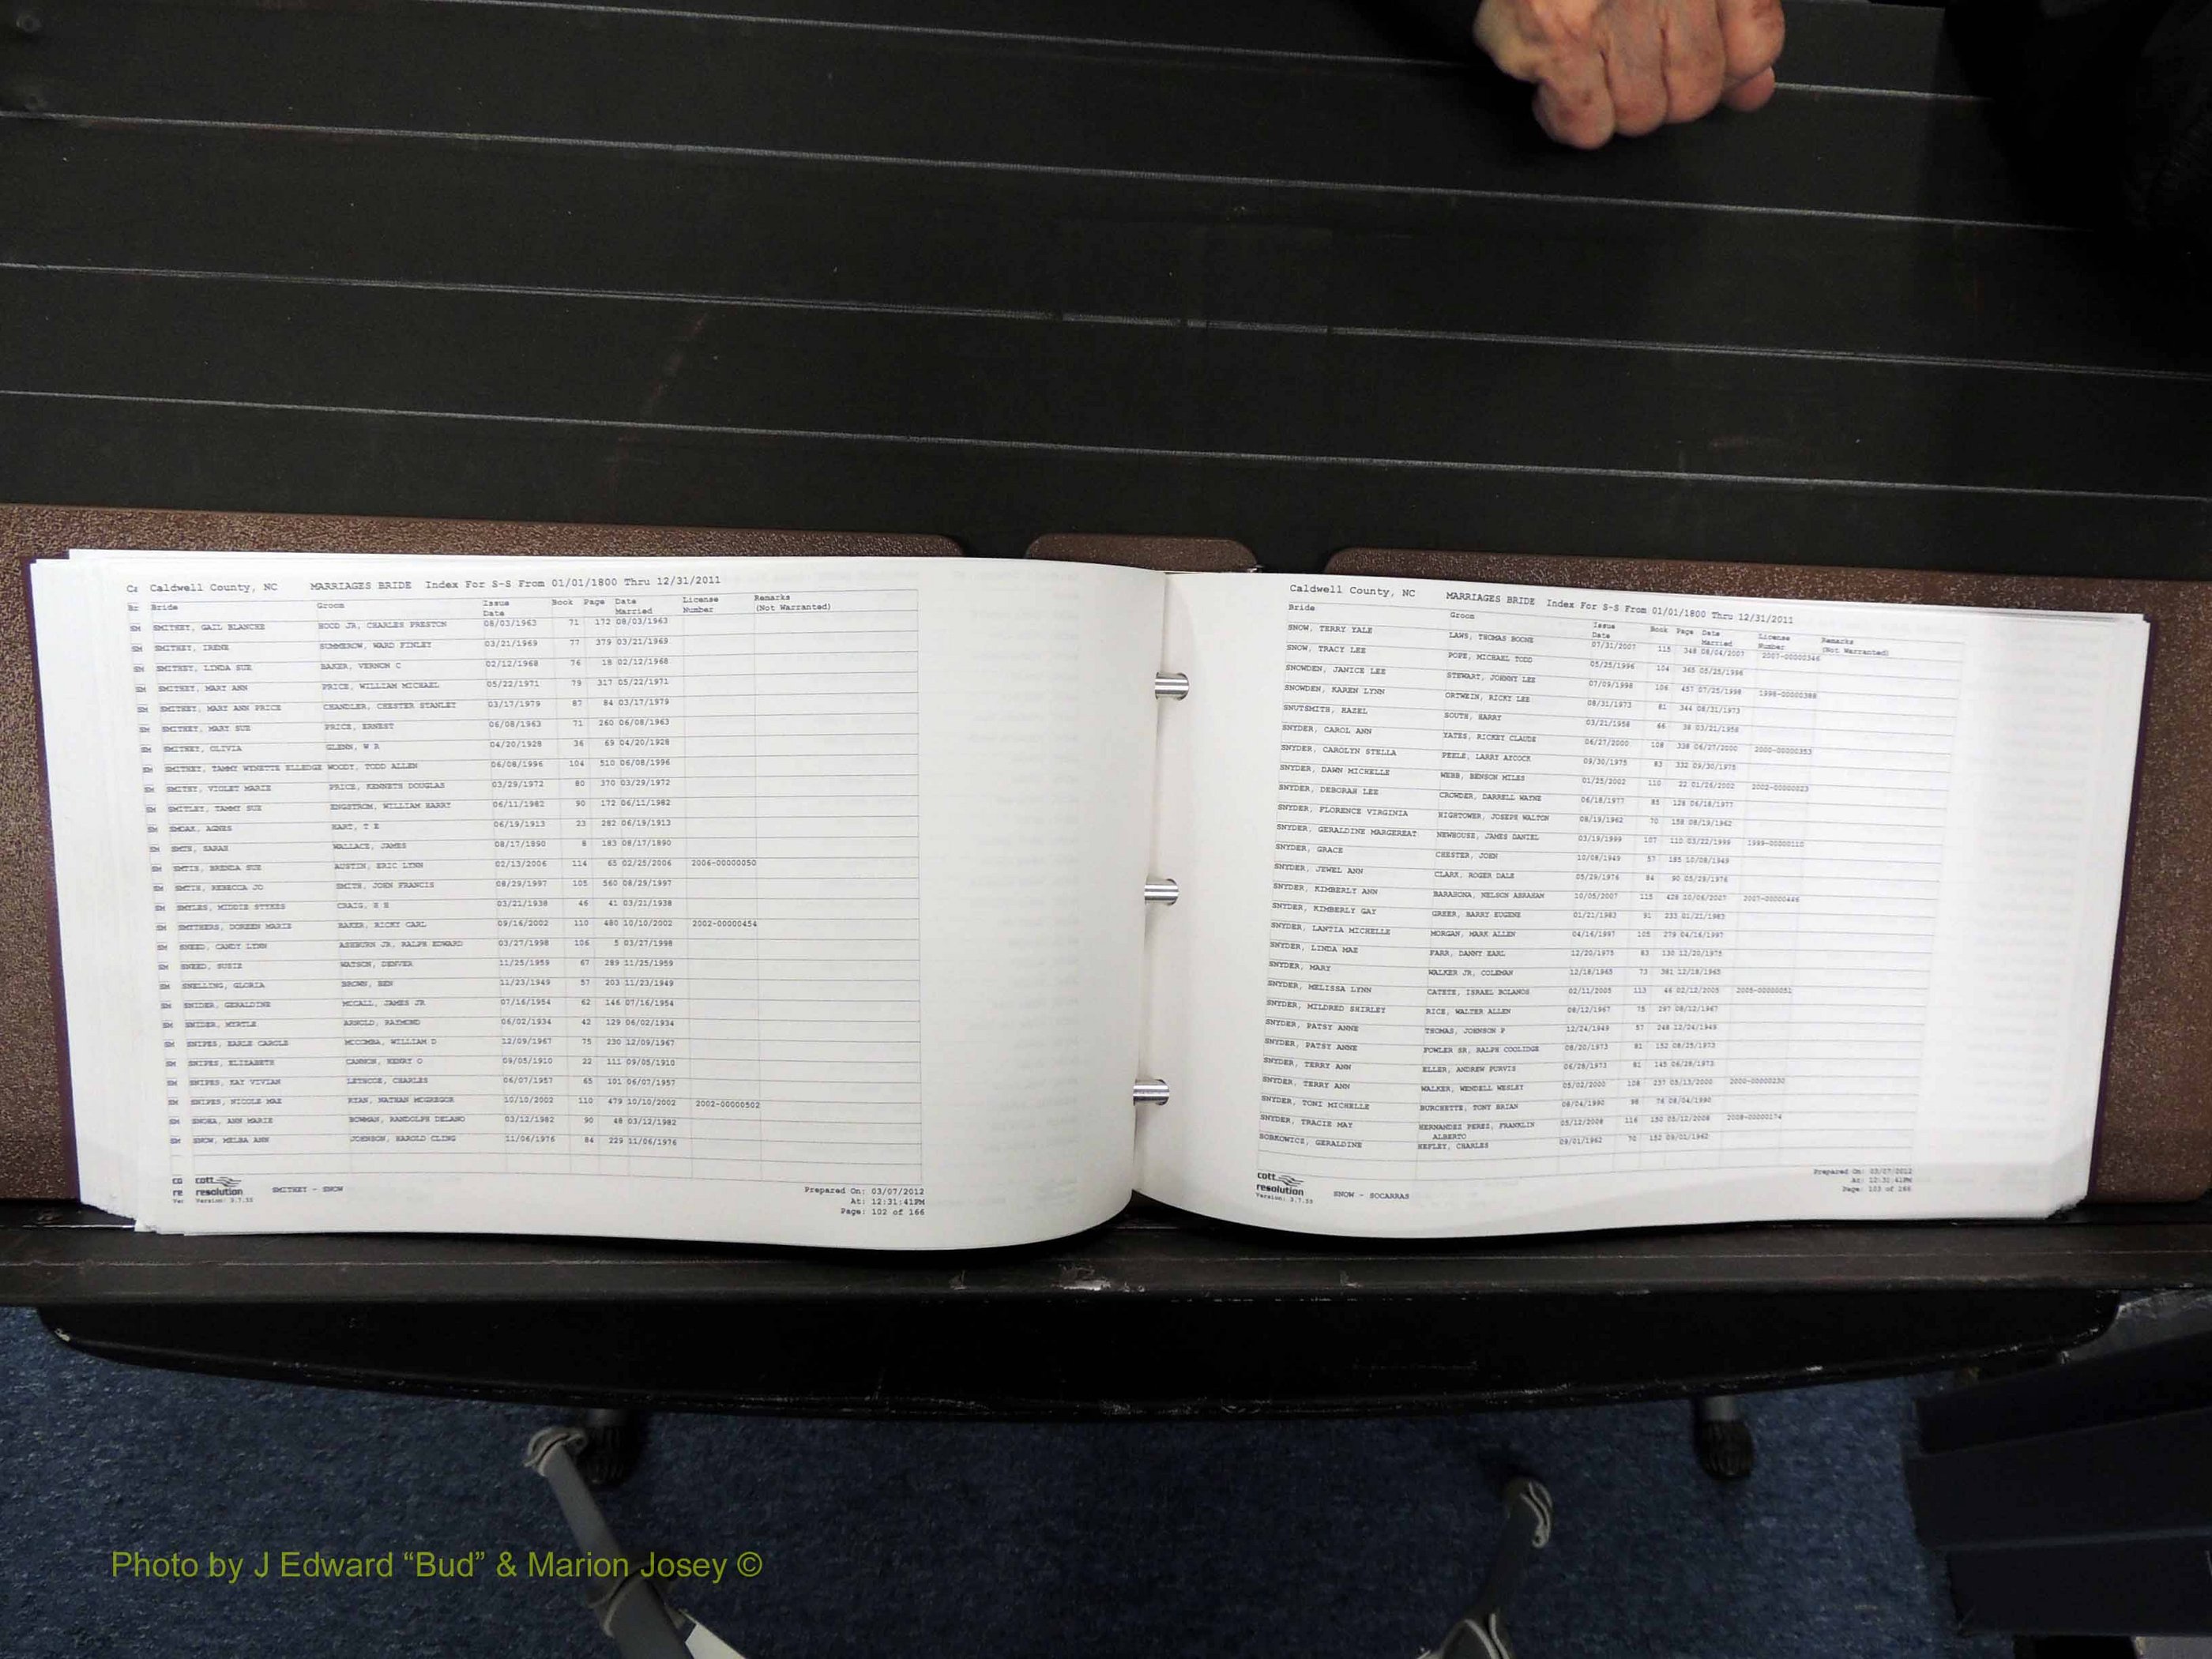 Caldwell County, NC MARRIAGES BRIDE Index For S-S From 01/01/1800 Thru 12/31/2011
Bride Groom Issue Date Book Page Date Married License Number Remarks (Not Warranted)
SMITHEY, GAIL BLANCHE HOOD JR, CHARLES PRESTON 08/03/1963 71 172 08/03/1963
SMITHEY, IRENE SUMMEROW, WARD FINLEY 03/21/1969 77 379 03/21/1969
SMITHEY, LINDA SUE BAKER, VERNON C 02/12/1968 76 18 02/12/1968
SMITHEY, MARY ANN PRICE, WILLIAM MICHAEL 05/22/1971 79 317 05/22/1971
SMITHEY, MARY ANN PRICE CHANDLER, CHESTER STANLEY 03/17/1979 87 84 03/17/1979
SMITHEY, MARY SUE PRICE, ERNEST 06/08/1963 71 260 06/08/1963
SMITHEY, OLIVIA GLENN, W R 04/20/1928 36 69 04/20/1928
SMITHEY, TAMMY WINETTE ELLEDGE WOODY, TODD ALLEN 06/08/1996 104 510 06/08/1996
SMITHY, VIOLET MARIE PRICE, KENNETH DOUGLAS 03/29/1972 80 370 03/29/1972
SMITLEY, TAMMY SUE ENGSTROM, WILLIAM HARRY 06/11/1982 90 172 06/11/1982
SMOAK, AGNES HART, T E 06/19/1913 23 282 06/19/1913
SMTH, SARAH WALLACE, JAMES 08/17/1890 8 183 08/17/1890
SMTIH, BRENDA SUE AUSTIN, ERIC LYNN 02/13/2006 114 65 02/25/2006 2006-00000050
SMTIH, REBECCA JO SMITH, JOHN FRANCIS 08/29/1997 105 560 08/29/1997
SMYLES, MIDDIE STYKES CRAIG, H H 03/21/1938 46 41 03/21/1938
SMITHERS, DOREEN MARIE BAKER, RICKY CARL 09/16/2002 110 480 10/10/2002 2002-00000454
SNEED, CANDY LYNN ASHBURN JR, RALPH EDWARD 03/27/1998 106 5 03/27/1998
SNEED, SUSIE WATSON, DENVER 11/25/1959 67 289 11/25/1959
SNELLING, GLORIA BROWN, BEN 11/23/1949 57 203 11/23/1949
SNIDER, GERALDINE MCCALL, JAMES JR 07/16/1954 62 146 07/16/1954
SNIDER, MYRTLE ARNOLD, RAYMOND 06/02/1934 42 129 06/02/1934
SNIPES, EARLE CAROLE MCCOMBA, WILLIAM D 12/09/1967 75 230 12/09/1967
SNIPES, ELIZABETH CANNON, HENRY O 09/05/1910 22 111 09/05/1910
SNIPES, KAY VIVIAN LETHCOE, CHARLES 06/07/1957 65 101 06/07/1957
SNIPES, NICOLE MAE RYAN, NATHAN MCGREGOR 10/10/2002 110 479 10/10/2002 2002-00000502
SNOKA, ANN MARIE BOWMAN, RANDOLPH DELANO 03/12/1982 90 48 03/12/1982
SNOW, MELBA ANN JOHNSON, HAROLD CLING 11/06/1976 84 229 11/06/1976
cott resolution
Version: 3.7.53
SMITHEY - SNOW
Prepared On: 03/07/2012
At: 12:31:41PM
Page: 102 of 166
Caldwell County, NC MARRIAGES BRIDE Index For S-S From 01/01/1800 Thru 12/31/2011
Bride Groom Issue Date Book Page Date Married License Number Remarks (Not Warranted)
SNOW, TERRY YALE LAWS, THOMAS BOONE 07/31/2007 115 348 08/04/2007 2007-00000346
SNOW, TRACY LEE POPE, MICHAEL TODD 05/25/1996 104 365 05/25/1996
SNOWDEN, JANICE LEE STEWART, JOHNNY LEE 07/09/1998 106 457 07/25/1998 1998-00000388
SNOWDEN, KAREN LYNN ORTWEIN, RICKY LEE 08/31/1973 81 344 08/31/1973
SNUTSMITH, HAZEL SOUTH, HARRY 03/21/1958 66 38 03/21/1958
SNYDER, CAROL ANN YATES, RICKEY CLAUDE 06/27/2000 108 338 06/27/2000 2000-00000353
SNYDER, CAROLYN STELLA PEELE, LARRY AYCOCK 09/30/1975 83 332 09/30/1975
SNYDER, DAWN MICHELLE WEBB, BENSON MILES 01/25/2002 110 22 01/26/2002 2002-00000023
SNYDER, DEBORAH LEE CROWDER, DARRELL WAYNE 06/18/1977 85 128 06/18/1977
SNYDER, FLORENCE VIRGINIA HIGHTOWER, JOSEPH WALTON 08/19/1962 70 158 08/19/1962
SNYDER, GERALDINE MARGEREAT NEWHOUSE, JAMES DANIEL 03/19/1999 107 110 03/22/1999 1999-00000110
SNYDER, GRACE CHESTER, JOHN 10/08/1949 57 185 10/08/1949
SNYDER, JEWEL ANN CLARK, ROGER DALE 05/29/1976 84 90 05/29/1976
SNYDER, KIMBERLY ANN BARAHONA, NELSON ABRAHAM 10/05/2007 115 428 10/06/2007 2007-00000446
SNYDER, KIMBERLY GAY GREER, BARRY EUGENE 01/21/1983 91 233 01/21/1983
SNYDER, LANTIA MICHELLE MORGAN, MARK ALLEN 04/16/1997 105 279 04/16/1997
SNYDER, LINDA MAE FARR, DANNY EARL 12/20/1975 83 130 12/20/1975
SNYDER, MARY WALKER JR, COLEMAN 12/18/1965 73 381 12/18/1965
SNYDER, MELISSA LYNN CATETE, ISRAEL BOLANOS 02/11/2005 113 46 02/12/2005 2005-00000051
SNYDER, MILDRED SHIRLEY RICE, WALTER ALLEN 08/12/1967 75 297 08/12/1967
SNYDER, PATSY ANNE THOMAS, JOHNSON P 12/24/1949 57 248 12/24/1949
SNYDER, PATSY ANNE FOWLER SR, RALPH COOLIDGE 08/20/1973 81 152 08/25/1973
SNYDER, TERRY ANN ELLER, ANDREW PURVIS 06/28/1973 81 145 06/28/1973
SNYDER, TERRY ANN WALKER, WENDELL WESLEY 05/02/2000 108 237 05/13/2000 2000-00000230
SNYDER, TONI MICHELLE BURCHETTE, TONY BRIAN 08/04/1990 98 76 08/04/1990
SNYDER, TRACIE MAY HERNANDEZ PEREZ, FRANKLIN ALBERTO 05/12/2008 116 150 05/12/2008 2008-00000174
SOBKOWICZ, GERALDINE HEFLEY, CHARLES 09/01/1962 70 152 09/01/1962
cott resolution
Version: 3.7.53
SNOW - SOCARRAS
Prepared On: 03/07/2012
At: 12:31:41PM
Page: 103 of 166
Photo by J Edward “Bud” & Marion Josey ©